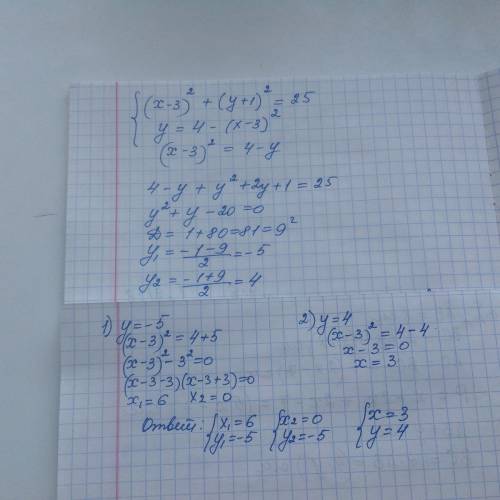 (x-3)² + (y+1)² = 25
y = 4 - (x-3)²
(x-3)² = 4-y
4-y + y² + 2y + 1 = 25
y² + y - 20 = 0
D = 1+80 = 81 = 9²
y₁ = (-1-9)/2 = -5
y₂ = (-1+9)/2 = 4
1) y = -5
(x-3)² = 4+5
(x-3)² - 3² = 0
(x-3-3)(x-3+3) = 0
x₁ = 6 x₂ = 0
2) y = 4
(x-3)² = 4-4
x-3 = 0
x = 3
Ответ: { x₁ = 6 { x₂ = 0 { x = 3
y₁ = -5 y₂ = -5 y = 4